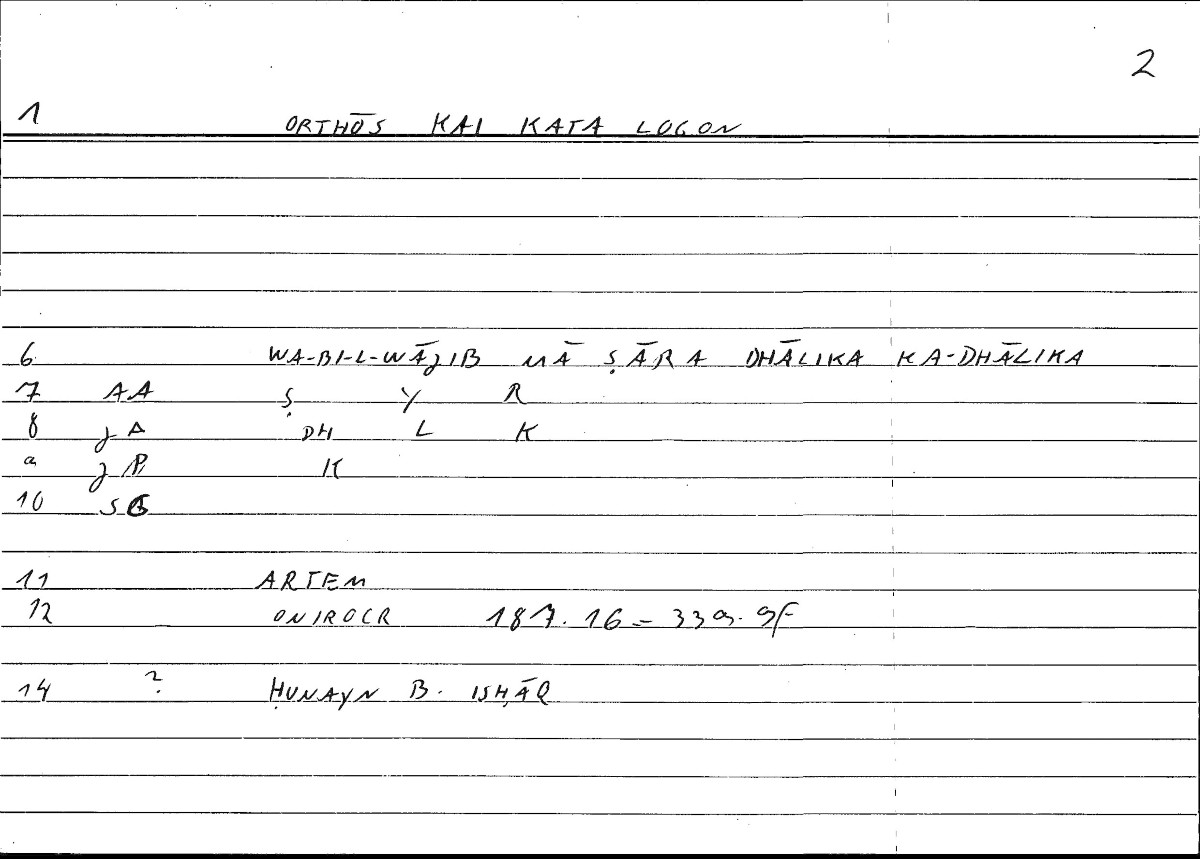 2
1 ORTHŌS KAI KATA LOGON
6 WA-BI-L-WĀJIB MĀ ṢĀRA DHĀLIKA KA-DHĀLIKA
7 AA Ṣ Y R
8 JA DH L K
9 JP K
10 SG
11 ARTEM
12 ONIROCR 187.16 = 339.9F
14 ? ḤUNAYN B. ISḤĀQ